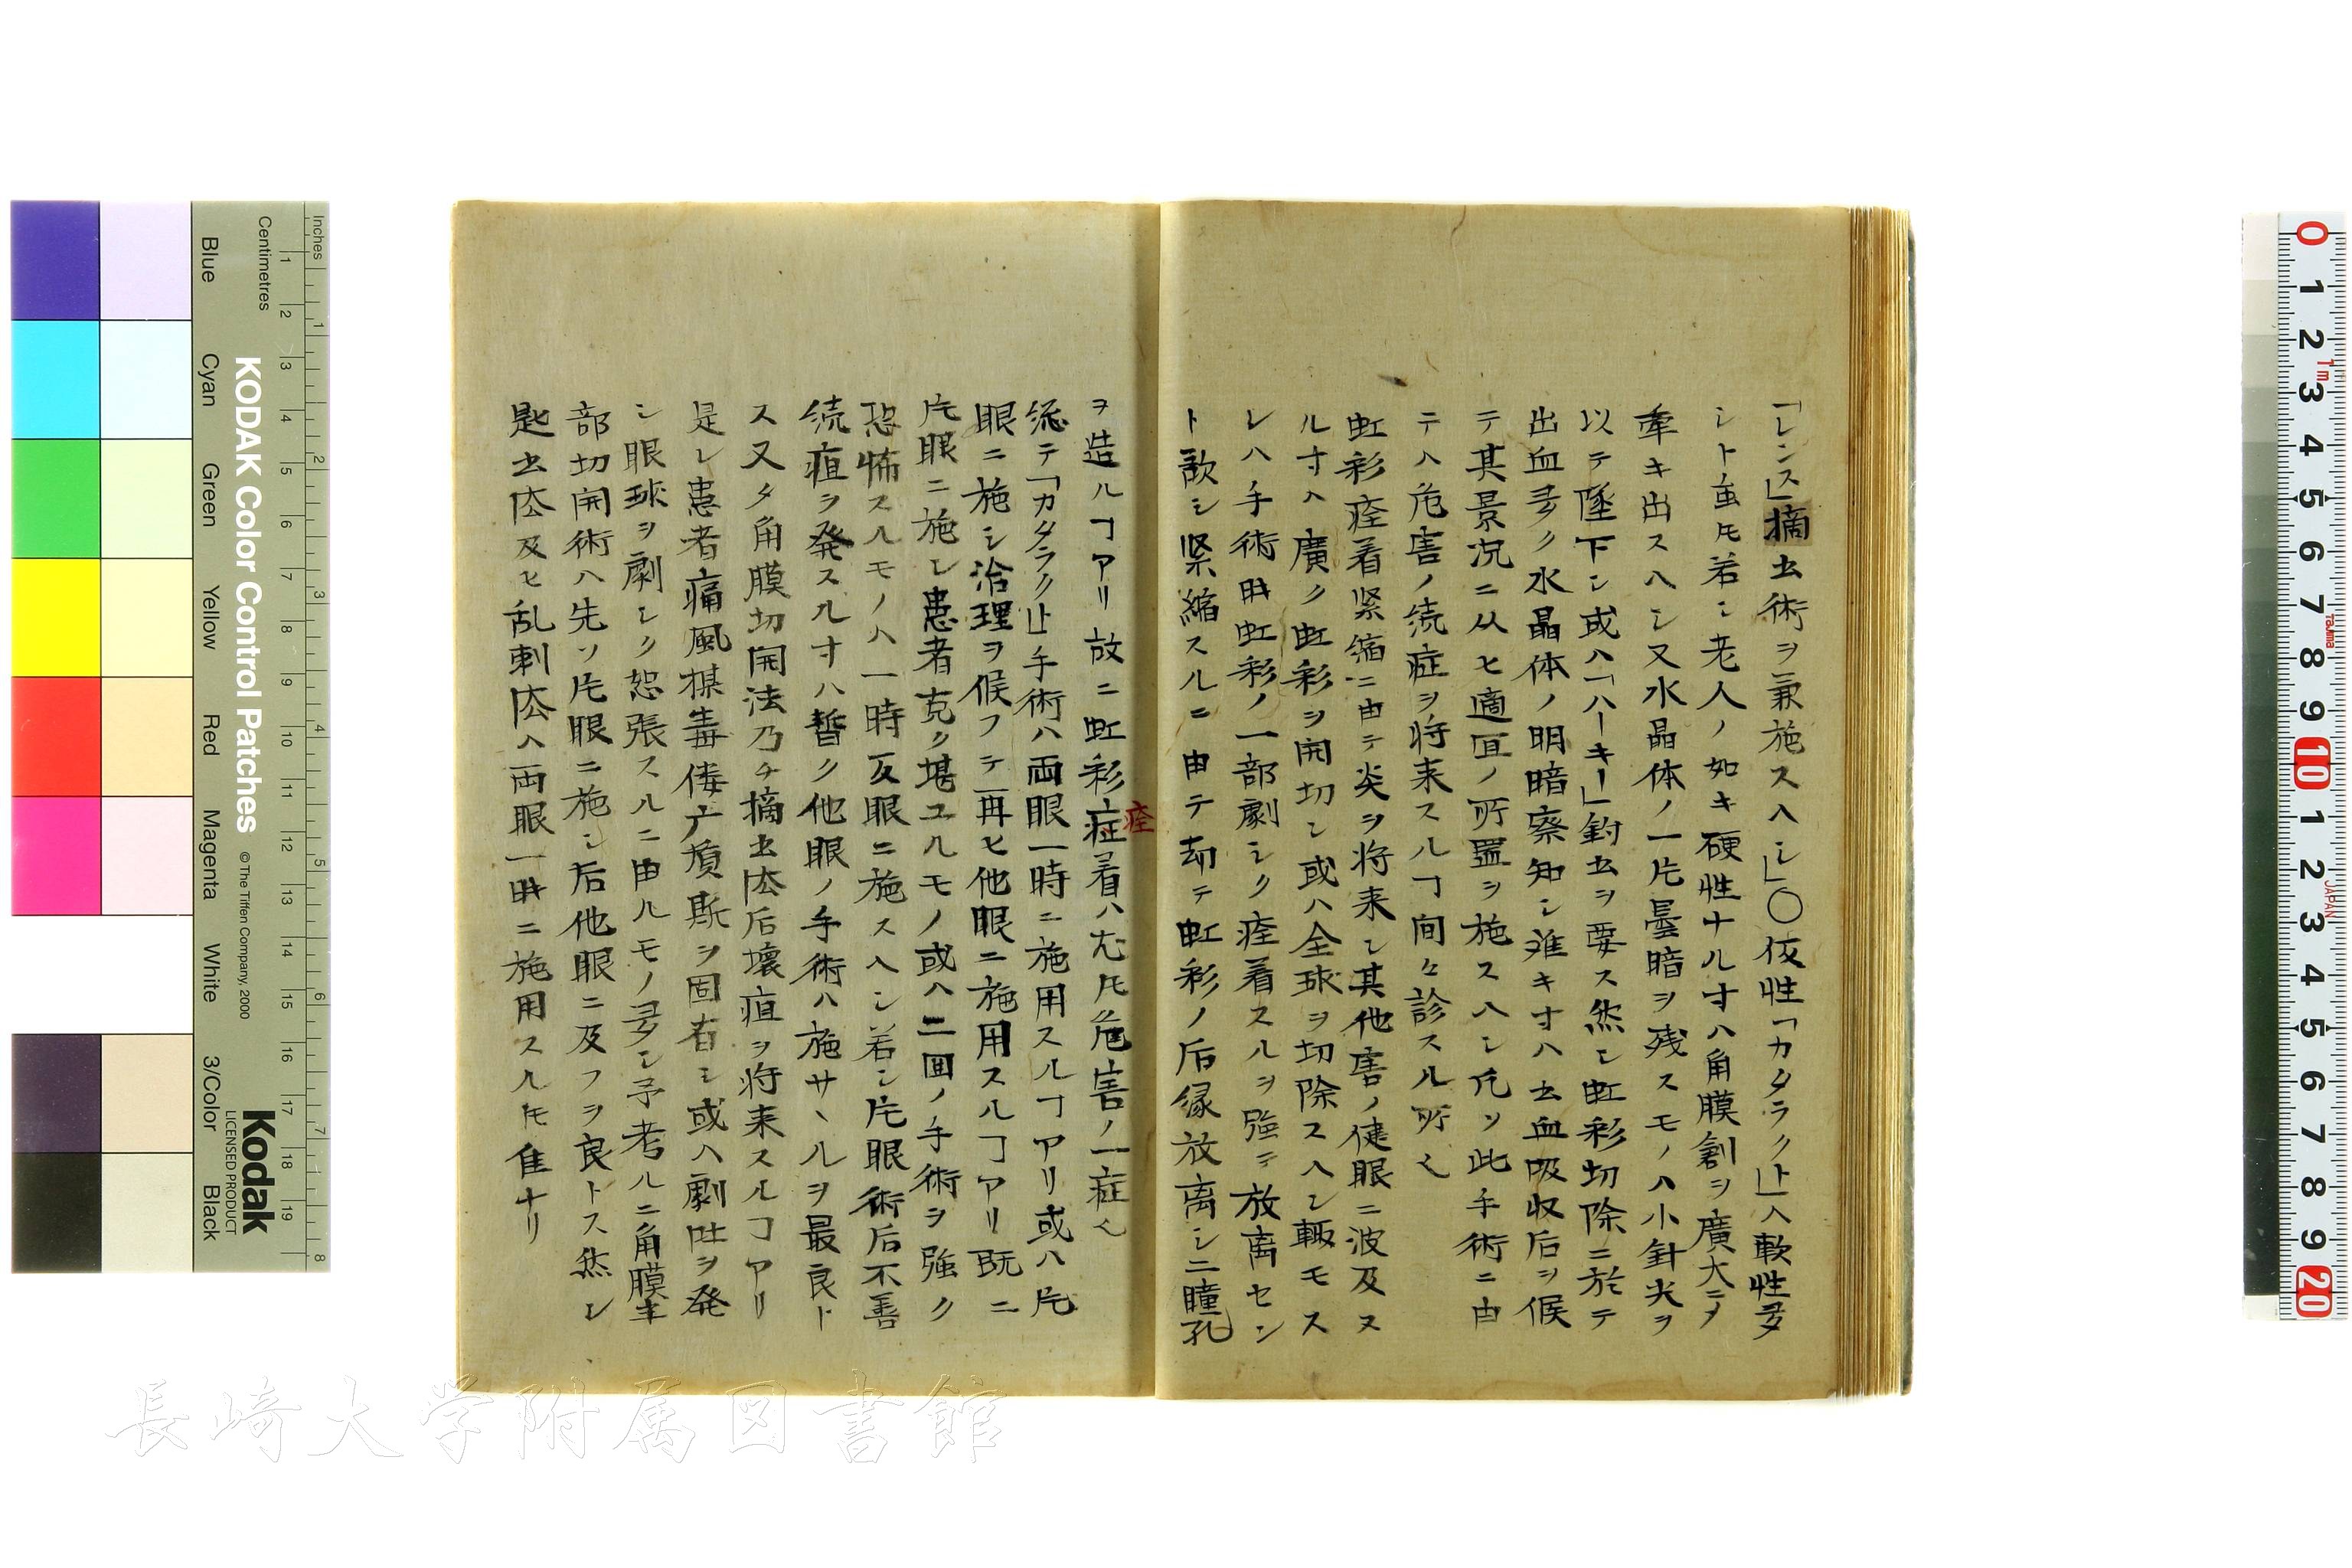 「レンス」摘出術ヲ兼施スヘシ」〇仮性「カタラクト」ハ軟性多
シト虽𪜈若シ老人ノ如キ硬性ナル寸ハ角膜創ヲ廣大ニメ
牽キ出スヘシ又水晶体ノ一片曇暗ヲ残スモノハ小針尖ヲ
以テ墜下シ或ハ「ハーキー」釣出ヲ要ス然シ虹彩切除ニ於テ
出血多ク水晶体ノ明暗察知シ難キ寸ハ出血吸収后ヲ候
テ其景况ニ从ヒ適宜ノ所置ヲ施スヘシ凢ソ此手術ニ由
テハ危害ノ続症ヲ将来スルヿ間々診スル所也
虹彩痊着紧縮ニ由テ炎ヲ将来シ其他害ノ健眼ニ波及ス
ル寸ハ廣ク虹彩ヲ開切シ或ハ全球ヲ切除スヘシ輙モス
レハ手術時虹彩ノ一部劇シク痊着スルヲ強テ放离セン
ト歇シ紧縮スルニ由テ却テ虹彩ノ后縁放离シ二瞳孔
ヲ造ルヿアリ故ニ虹彩症着ハ尤𪜈危害ノ一症也
痊
総テ「カタラクト」手術ハ両眼一時ニ施用スルヿアリ或ハ片
眼ニ施シ治理ヲ候フテ再ヒ他眼ニ施用スルヿアリ既ニ
片眼ニ施シ患者克ク堪ユルモノ或ハ二回ノ手術ヲ強ク
恐怖スルモノハ一時反眼ニ施スヘシ若シ片眼術后不善
続疽ヲ発スル寸ハ暫ク他眼ノ手術ハ施サヽルヲ最良ト
ス又タ角膜切開法乃チ摘出㳒后壊疽ヲ将来スルヿアリ
是レ患者痛風梅毒倭亣質斯ヲ固有シ或ハ劇吐ヲ発
シ眼球ヲ劇シク怒張スルニ由ルモノ多シ予考ルニ角膜半
部切開術ハ先ソ片眼ニ施シ后他眼ニ及フヲ良トス然レ
匙出㳒及ヒ乱刺㳒ハ両眼一時ニ施用スル𪜈佳ナリ
長崎大学附属図書館
Inches
Centimetres
KODAK Color Control Patches
© The Tiffen Company, 2000
Kodak
LICENSED PRODUCT
Blue Cyan Green Yellow Red Magenta White 3/Color Black
1 2 3 4 5 6 7 8
1 2 3 4 5 6 7 8 9 10 11 12 13 14 15 16 17 18 19
0 1 2 3 4 5 6 7 8 9 10 1 2 3 4 5 6 7 8 9 20
1m
Tajima
JAPAN